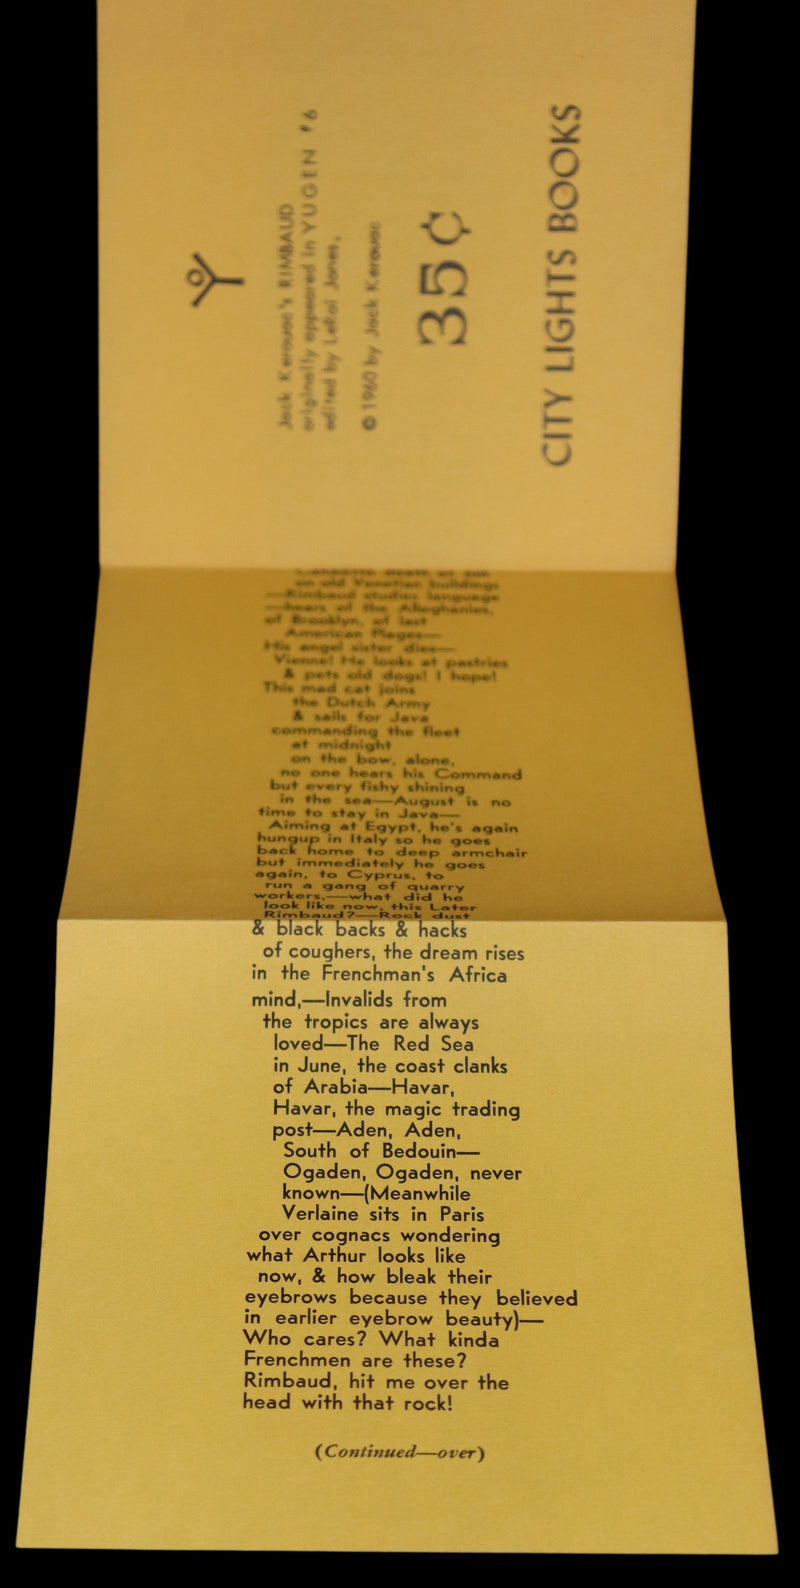 Jack Kerouac's RIMBAUD
originally appeared in YUGEN #6
edited by LeRoi Jones,
© 1960 by Jack Kerouac
35¢
CITY LIGHTS BOOKS
on old Venetian buildings
—Rimbaud studies language
—hears of the Alleghanies,
of Brooklyn, of last
American Plages—
His angel sister dies—
Vienne! He looks at pastries
& pets old dogs! I hope!
This mad cat joins
the Dutch Army
& sails for Java
commanding the fleet
at midnight
on the bow, alone,
no one hears his Command
but every fishy shining
in the sea—August is no
time to stay in Java—
Aiming at Egypt, he's again
hungup in Italy so he goes
back home to deep armchair
but immediately he goes
again, to Cyprus, to
run a gang of quarry
workers,—what did he
look like now, this Later
Rimbaud?—Rock dust
& black backs & hacks
of coughers, the dream rises
in the Frenchman's Africa
mind,—Invalids from
the tropics are always
loved—The Red Sea
in June, the coast clanks
of Arabia—Havar,
Havar, the magic trading
post—Aden, Aden,
South of Bedouin—
Ogaden, Ogaden, never
known—(Meanwhile
Verlaine sits in Paris
over cognacs wondering
what Arthur looks like
now, & how bleak their
eyebrows because they believed
in earlier eyebrow beauty)—
Who cares? What kinda
Frenchmen are these?
Rimbaud, hit me over the
head with that rock!
(Continued—over)